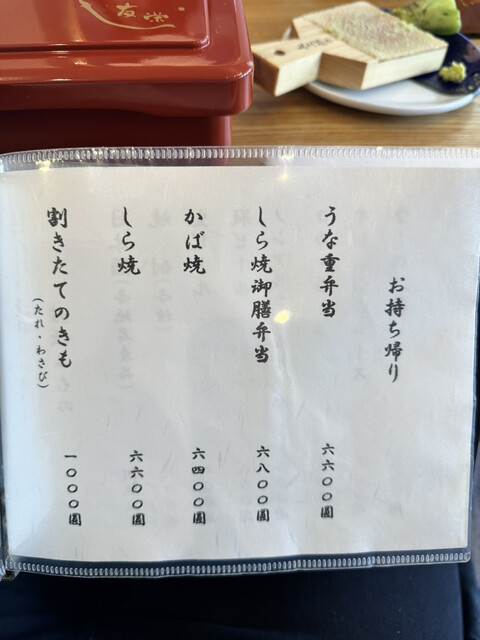 友栄
お持ち帰り
うな重弁当 六六〇〇圓
しら焼御膳弁当 六八〇〇圓
かば焼 六四〇〇圓
しら焼 六六〇〇圓
割きたてのきも 一〇〇〇圓
(たれ・わさび)